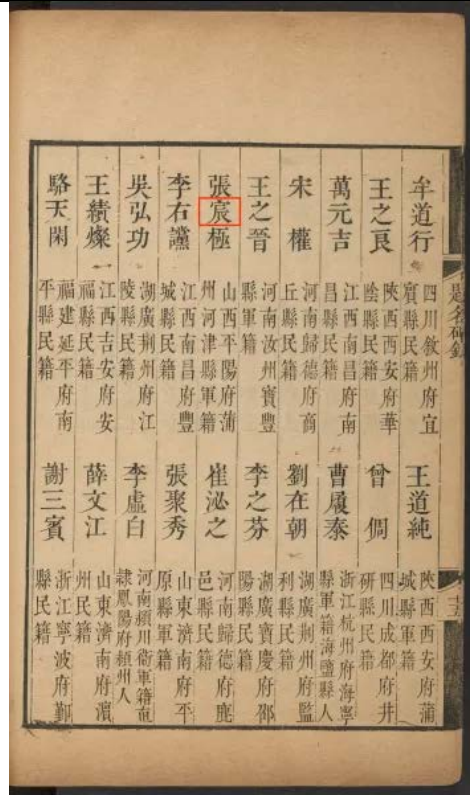 題名碑錄
牟道行 四川敘州府宜賓縣民籍 王道純 陝西西安府蒲城縣軍籍
王之良 陝西西安府華陰縣民籍 曾倜 四川成都府井研縣民籍
萬元吉 江西南昌府南昌縣民籍 曹履泰 浙江杭州府海寧縣軍籍海鹽縣人
宋權 河南歸德府商丘縣民籍 劉在朝 湖廣荆州府監利縣民籍
王之晉 河南汝州寶豐縣軍籍 李之芬 湖廣寶慶府邵陽縣民籍
張宸極 山西平陽府蒲州河津縣軍籍 崔泌之 河南歸德府鹿邑縣民籍
李右讜 江西南昌府豐城縣民籍 張聚秀 山東濟南府平原縣軍籍
吳弘功 湖廣荆州府江陵縣民籍 李虛白 河南潁川衛軍籍直隸鳳陽府潁州人
王績燦 江西吉安府安福縣民籍 薛文江 山東濟南府濱州民籍
駱天閑 福建延平府南平縣民籍 謝三賓 浙江寧波府鄞縣民籍